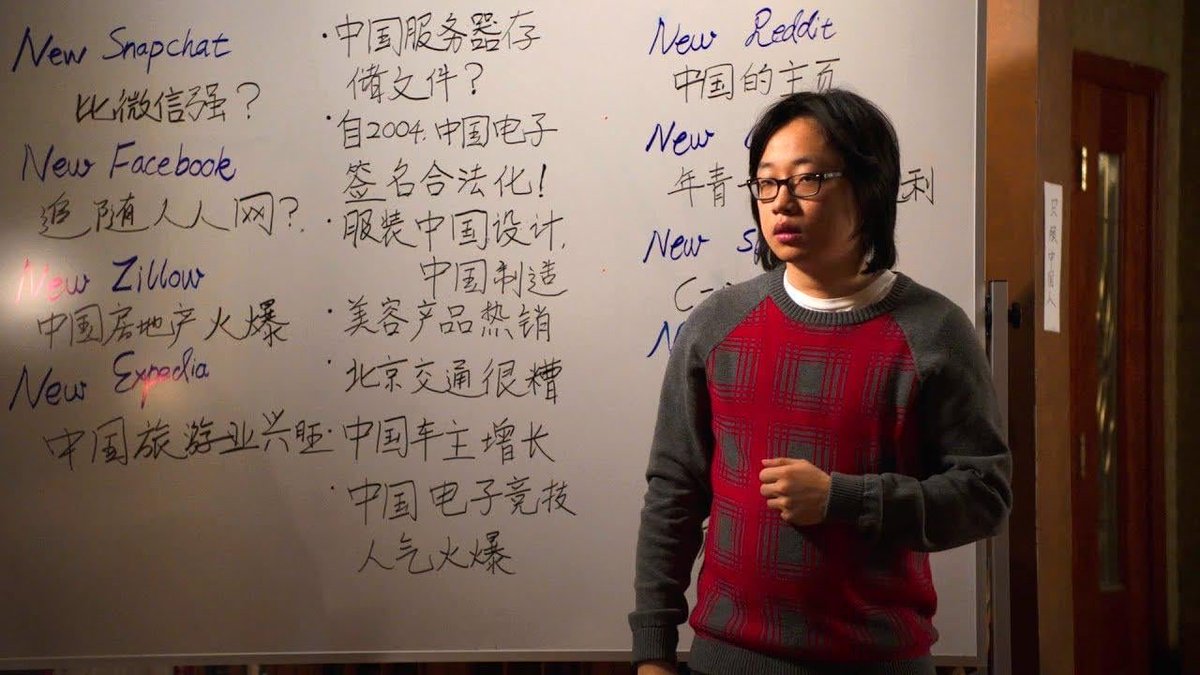 New Snapchat
比微信强？
New Facebook
追随人人网？
New Zillow
中国房地产火爆
New Expedia
中国旅游业兴旺
·中国服务器存
储文件？
·自2004.中国电子
签名合法化！
·服装中国设计，
中国制造
·美容产品热销
·北京交通很糟
·中国车主增长
·中国电子竞技
人气火爆
New Reddit
中国的主页
New
年青
利
New